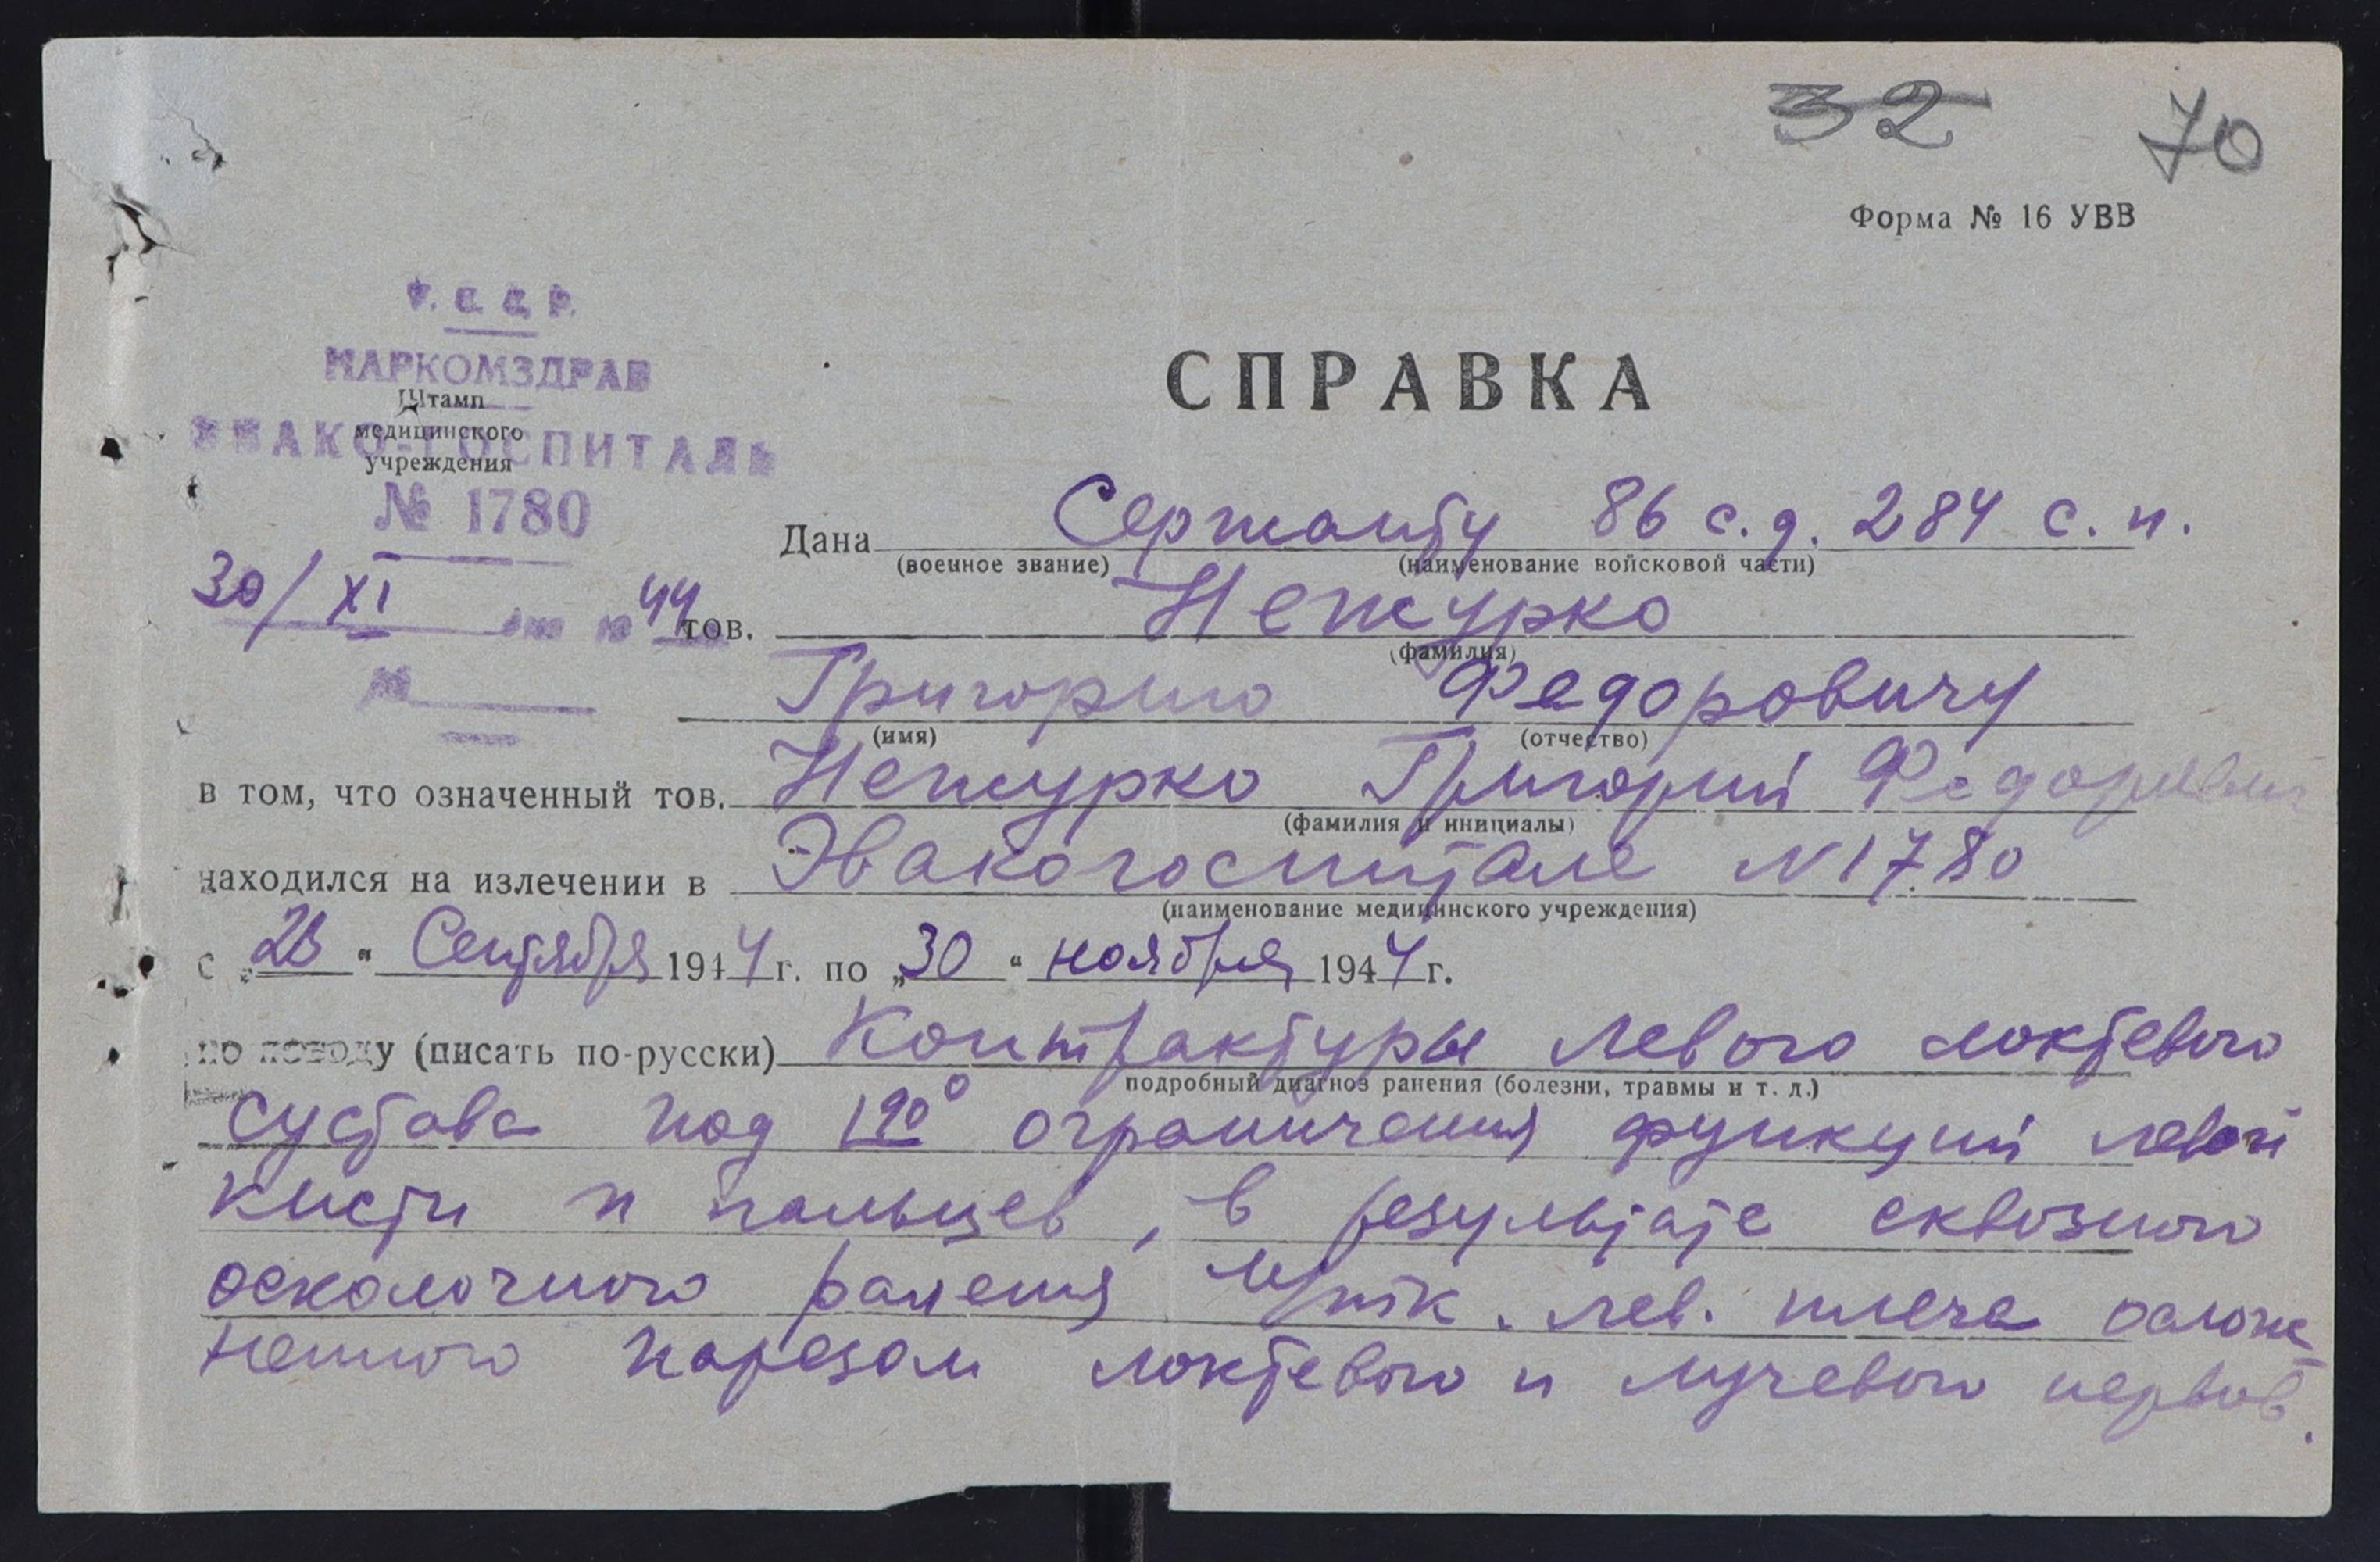 32 70
Форма № 16 УВВ
НАРКОМЗДРАВ
Штамп
медицинского
ЭВАКО-ГОСПИТАЛЬ
учреждения
№ 1780
СПРАВКА
Дана Сержанту 86 с.д. 284 с.п.
(военное звание) (наименование войсковой части)
30/XI 44
тов. Нежурко
(фамилия)
№
Григорию Федоровичу
(имя) (отчество)
в том, что означенный тов. Нежурко Григорий Федорович
(фамилия и инициалы)
находился на излечении в Эвакогоспитале N 1780
(наименование медицинского учреждения)
с „28“ Сентября 1944 г. по „30“ ноября 1944 г.
по поводу (писать по-русски) Контрактуры левого локтевого
подробный диагноз ранения (болезни, травмы и т. д.)
сустава под 190° ограничения функций левой
кисти и пальцев, в результате сквозного
осколочного ранения мягк. лев. плеча ослож
ненного парезом локтевого и лучевого нервов.